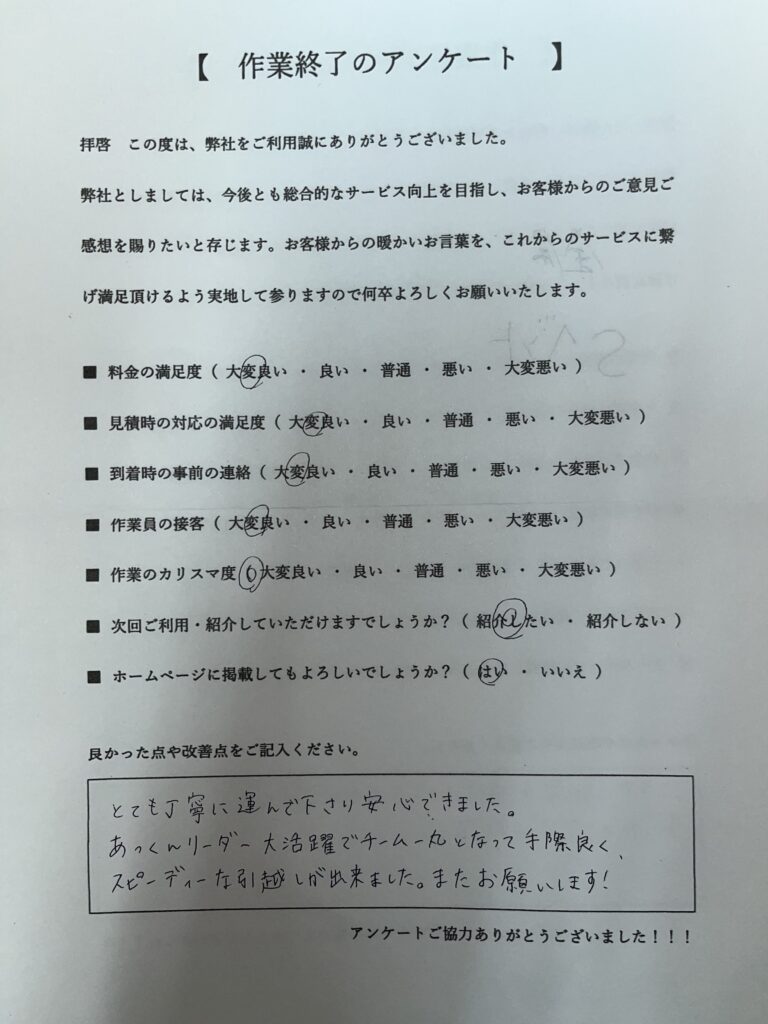 【 作業終了のアンケート 】
拝啓 この度は、弊社をご利用誠にありがとうございました。
弊社としましては、今後とも総合的なサービス向上を目指し、お客様からのご意見ご
感想を賜りたいと存じます。お客様からの暖かいお言葉を、これからのサービスに繋
げ満足頂けるよう実地して参りますので何卒よろしくお願いいたします。
■ 料金の満足度（ 大変良い ・ 良い ・ 普通 ・ 悪い ・ 大変悪い ）
■ 見積時の対応の満足度（ 大変良い ・ 良い ・ 普通 ・ 悪い ・ 大変悪い ）
■ 到着時の事前の連絡（ 大変良い ・ 良い ・ 普通 ・ 悪い ・ 大変悪い ）
■ 作業員の接客（ 大変良い ・ 良い ・ 普通 ・ 悪い ・ 大変悪い ）
■ 作業のカリスマ度（ 大変良い ・ 良い ・ 普通 ・ 悪い ・ 大変悪い ）
■ 次回ご利用・紹介していただけますでしょうか？（ 紹介したい ・ 紹介しない ）
■ ホームページに掲載してもよろしいでしょうか？（ はい ・ いいえ ）
良かった点や改善点をご記入ください。
とても丁寧に運んで下さり安心できました。
あっくんリーダー大活躍でチーム一丸となって手際良く、
スピーディーな引越しが出来ました。またお願いします！
アンケートご協力ありがとうございました！！！